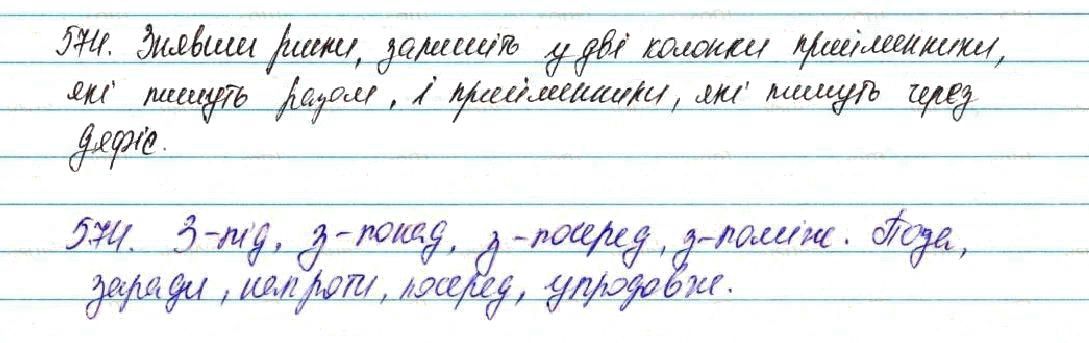 574. Знявши риски, запишіть у дві колонки прийменники,
які пишуть разом, і прийменники, які пишуть через
дефіс.
574. З-під, з-понад, з-посеред, з-поміж. Поза,
заради, навпроти, посеред, упродовж.